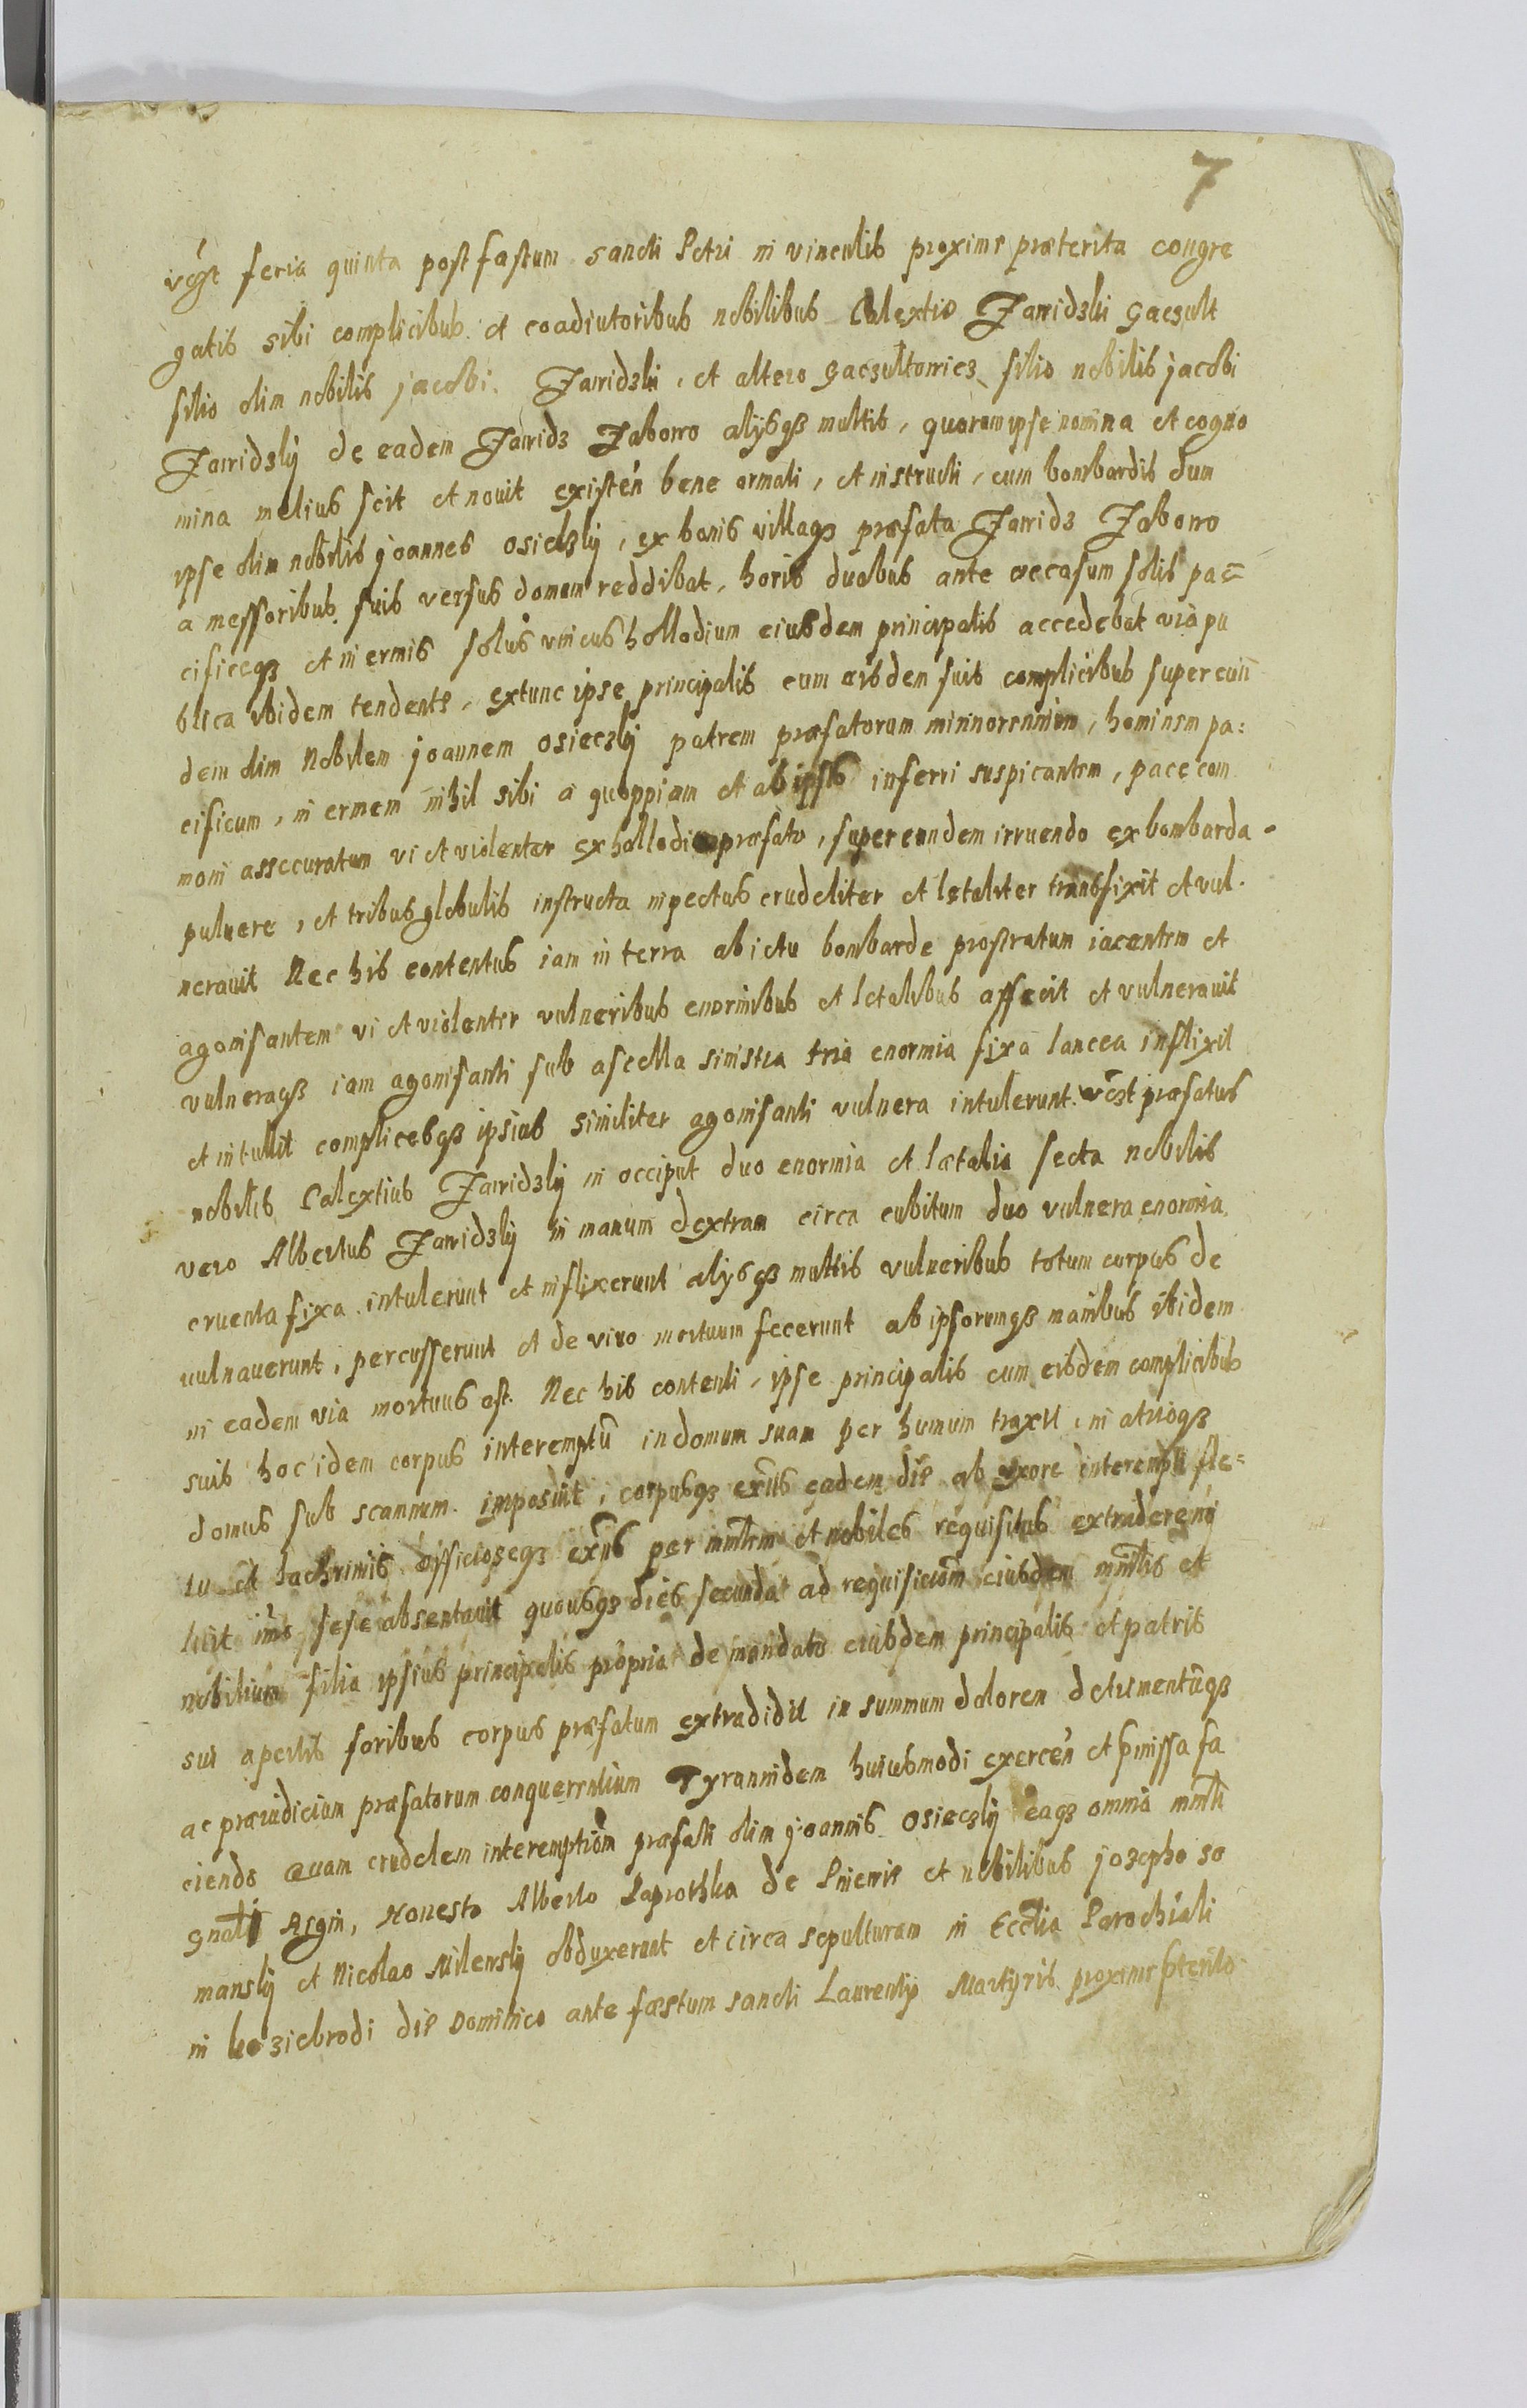 7
feria quinta post fastum sancti Petri in vinculis proxime praeterita congre
gatis sibi complicibus et coadiutoribus nobilibus Calextio Jawidzki Gacsult
filio olim nobilis jacobi Jawidzki, et altero Gacsultowicz filio nobilis jacobi
Jawidzkij de eadem Jawidz Jaborro alijsqz multis, quorum ipse nomina et cogno
mina melius scit et nouit existen bene armati, et instructi, cum bombardis dum
ipse olim nobilis joannes osieczkij, ex bonis villaqz praefata Jawidz Jaborro
a messoribus suis versus domum reddibat, horis duabus ante occasum solis pa=
cificeqz et inermis solus vnicus hollodium eiusdem principalis accedebat via pu
blica ibidem tendente, extunc ipse principalis cum eisdem suis complicibus super eun
dem olim Nobilem joannem osieczkij patrem praefatorum minnorennium, hominem pa=
cificum, in ermem nihil sibi a quoppiam et ab ipso inferri suspicantem, pace com
moni assecuratum vi et violenter ex hollodio praefato, super eundem irruendo ex bombarda
puluere, et tribus globulis instructa in pectus crudeliter et letaliter transfixit et vul.
nerauit Nec his contentus iam in terra ab ictu bombarde prostratum iacentem et
agonisantem vi et violenter vulneribus enormibus et letalibus affecit et vulnerauit
vulneraqz iam agonisanti sub ascella sinistra tria enormia fixa lancea inflixit
et intullit complicesqz ipsius similiter agonisanti vulnera intulerunt. vczt praefatus
nobilis Calextius Jawidzkij in occiput duo enormia et laetalia secta nobilis
vero Albertus Jawidzkij in manum dextram circa cubitum duo vulnera enormia
cruenta fixa intulerunt et inflixerunt alijsqz multis vulneribus totum corpus de
uulnauerunt, percusserunt et de viuo mortuum fecerunt ab ipsorumqz manibus ibidem
in eadem via mortuus est. Nec his contenti, ipse principalis cum eisdem complicibus
suis hoc idem corpus interemptu in domum suam per humum traxit, in atrioqz
domus sub scamnum imposuit, corpusqz eadem die ab uxore interempti fle=
tu et lachrimis officioseqz per et nobiles requisitus extradere
luit sese absentauit quousqz dies secunda ad requisicionem eiusdem et
nobilium filia ipsius principalis propria de mandato eiusdem principalis et patris
sui apertis foribus corpus praefatum extradidit in summum dolorem detrimentuqz
ac praeiudicium praefatorum conquerentium Tyrannidem huiusmodi exercen et fa
ciendo quam crudelem interemptiom praefati olim joannis osieczkij eaqz omnia
Regni, Honesto Alberto Paprothka de et nobilibus josepho so
manskij et Nicolao Milenskij obduxerunt et circa sepulturam in Ecclia Parochiali
in kosiebrodi die Dominico ante faestum sancti Laurentij Martyris proxime